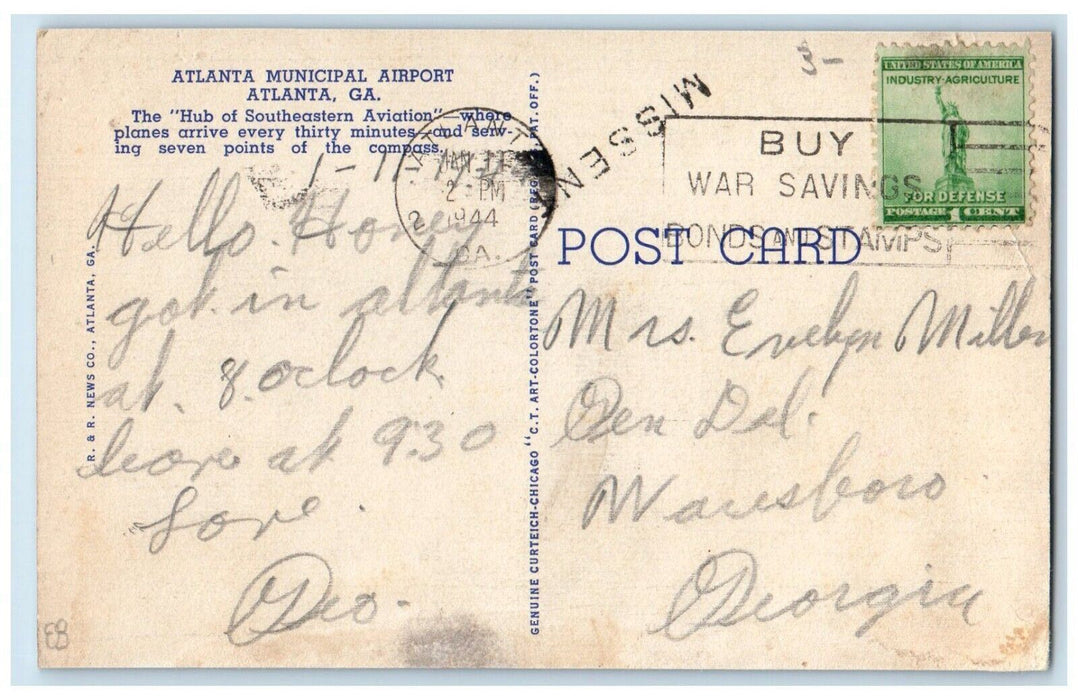 ATLANTA MUNICIPAL AIRPORT
ATLANTA, GA.
The "Hub of Southeastern Aviation" where
planes arrive every thirty minutes and serv-
ing seven points of the compass.
1-11-
Hello. Honey
got in atlanta
at. 8. oclock.
leave at 930
Love.
Geo.
R. & R. NEWS CO., ATLANTA, GA.
GENUINE CURTEICH-CHICAGO "C.T. ART-COLORTONE" POST CARD (REG. PAT. OFF.)
JAN 11
2 - PM
1944
GA.
MISSENT
BUY
WAR SAVINGS
BONDS AND STAMPS
UNITED STATES OF AMERICA
INDUSTRY-AGRICULTURE
FOR DEFENSE
POSTAGE 1 CENT
POST CARD
Mrs. Evelyn Miller
Gen Del.
Georgia
EB